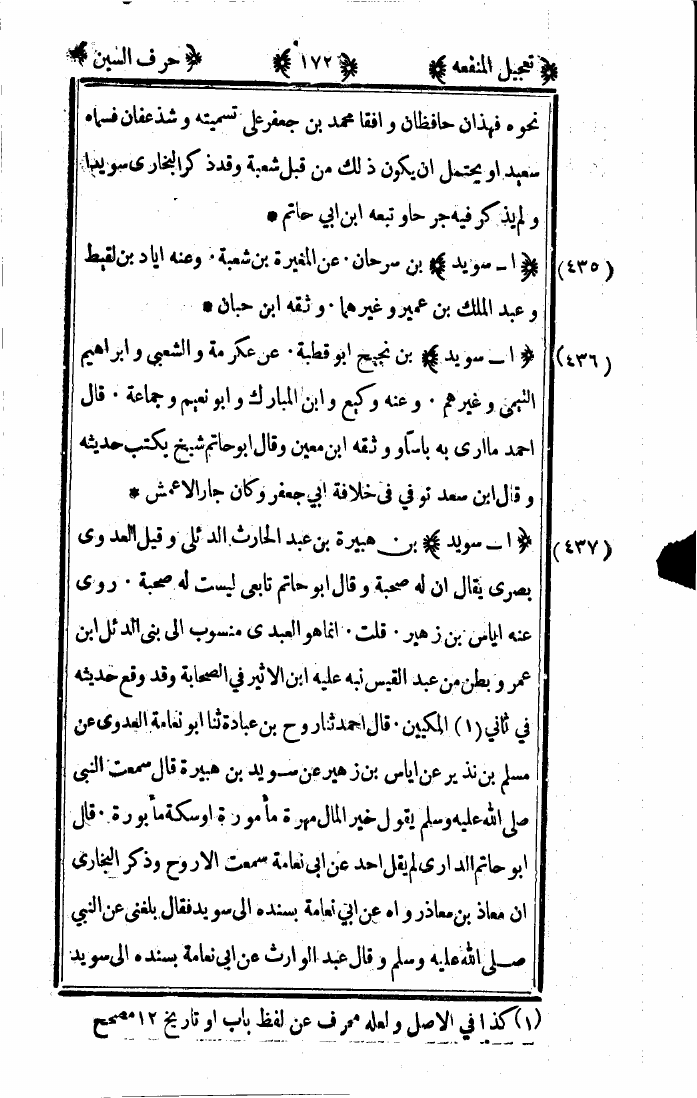 ﴿ تعجيل المنفعه ﴾ ﴿ ١٧٢ ﴾ ﴿ حرف السين ﴾
نحوه فهذان حافظان وافقا محمد بن جعفر على تسميته وشذ عفان فسماه
سعيد او يحتمل ان يكون ذلك من قبل شعبة وقد ذكر البخارى سويدا
ولم يذكر فيه جرحا وتبعه ابن ابي حاتم *
(٤٣٥) ﴿ ا ـ سويد ﴾ بن سرحان · عن المغيرة بن شعبة · وعنه اياد بن لقيط
وعبد الملك بن عمير وغيرهما · وثقه ابن حبان *
(٤٣٦) ﴿ ا ـ سويد ﴾ بن نجيح ابو قطبة · عن عكرمة والشعبي وابراهيم
التيمى وغيرهم · وعنه وكيع وابن المبارك وابو نعيم وجماعة · قال
احمد ماارى به باسا و وثقه ابن معين وقال ابو حاتم شيخ يكتب حديثه
وقال ابن سعد توفي فى خلافة ابي جعفر وكان جار الاعمش *
(٤٣٧) ﴿ ا ـ سويد ﴾ بن هبيرة بن عبد الحارث الدئلى وقيل العدوى
بصرى يقال ان له صحبة وقال ابو حاتم تابعى ليست له صحبة · روى
عنه اياس بن زهير · قلت · انما هو العبدى منسوب الى بنى الدئل ابن
عمرو بطن من عبد القيس نبه عليه ابن الاثير في الصحابة وقد وقع حديثه
في ثاني (١) المكيين · قال احمد ثنا روح بن عبادة ثنا ابو نعامة العدوى عن
مسلم بن نذير عن اياس بن زهير عن سويد بن هبيرة قال سمعت النبى
صلى الله عليه وسلم يقول خير المال مهرة مأمورة او سكة مأبورة · قال
ابو حاتم الدارى لم يقل احد عن ابى نعامة سمعت الا روح وذكر البخارى
ان معاذ بن معاذ رواه عن ابي نعامة بسنده الى سويد فقال بلغنى عن النبي
صلى الله عليه وسلم وقال عبد الوارث عن ابى نعامة بسنده الى سويد
(١) كذا في الاصل ولعله محرف عن لفظ باب او تاريخ ١٢ مصحح